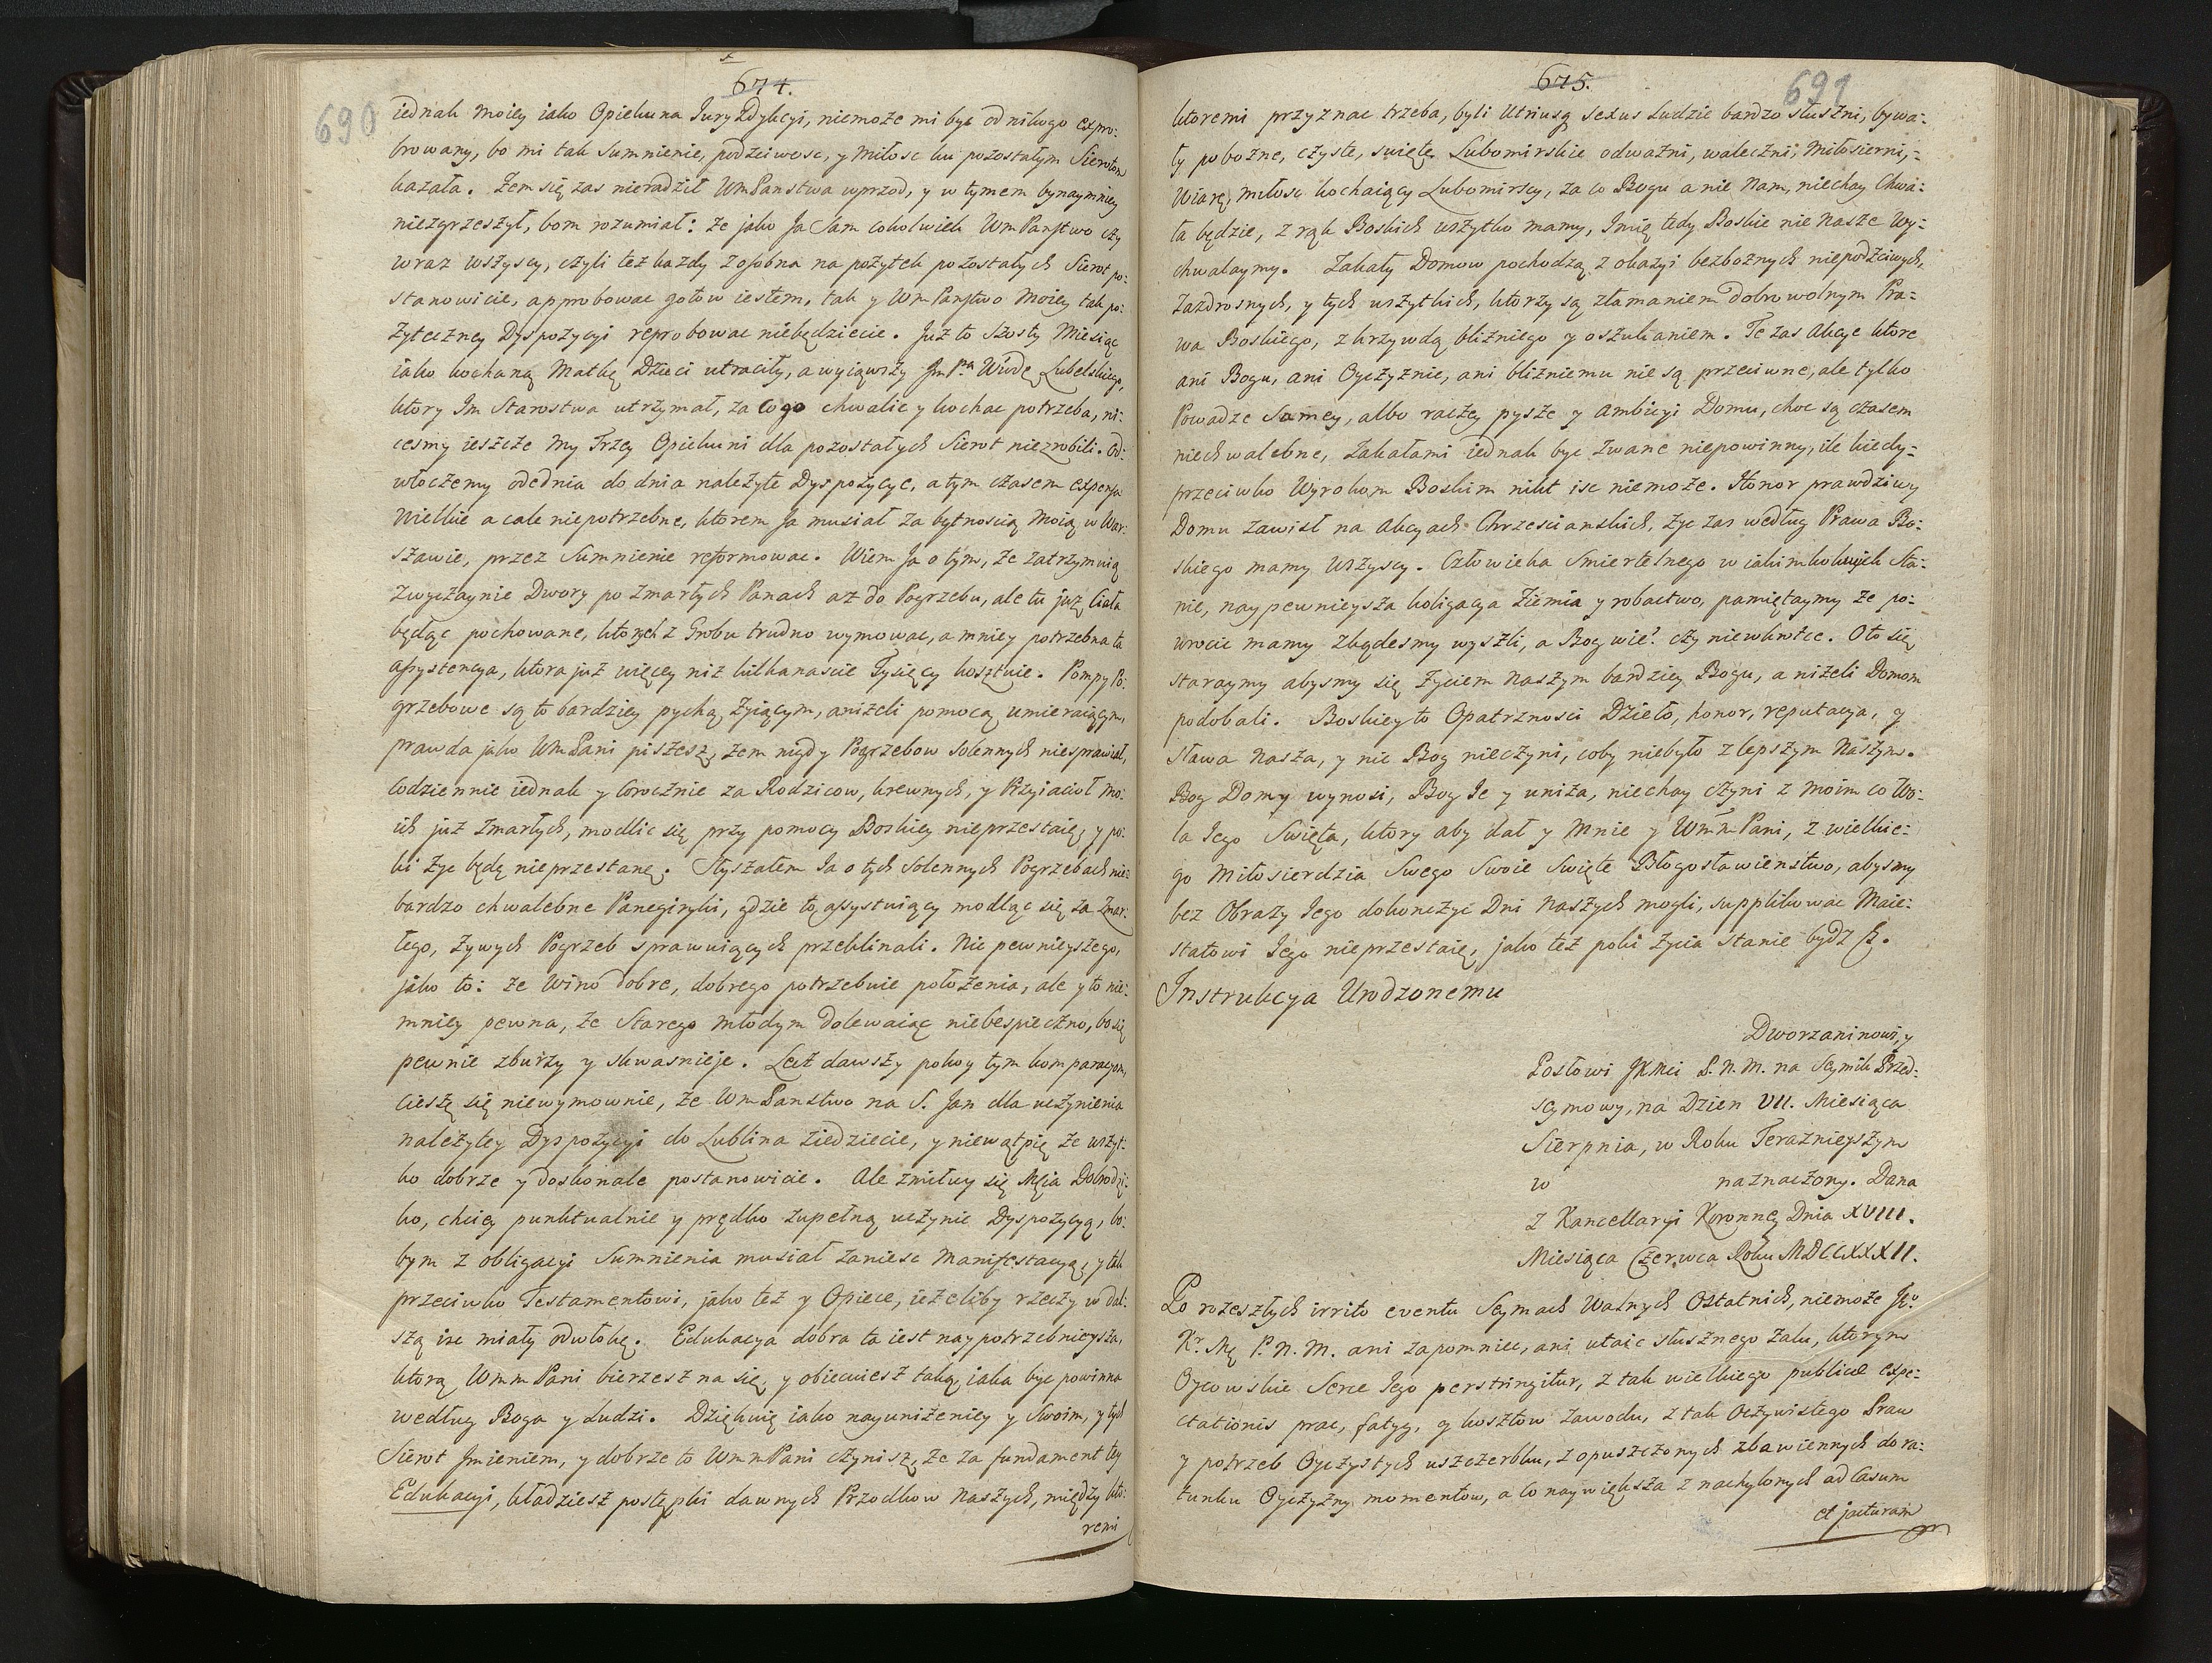 674.
690
iednak moiey iako Opiekuna Juryzdykcyi, niemoże mi byc od nikogo expro:
browany, bo mi tak Sumnienie, podzciwosc, y Miłosc ku pozostałym Sierotom
kazała. Zem się zas nieradził WmPanstwa wprzod, y w tymem bynaymniey
niezgrzeszył, bom rozumiał: że jako Ja Sam cokolwiek WmPanstwo czy
wraz wszyscy, czyli też każdy z osobna na pożytek pozostałych Sierot po:
stanowicie, approbowac gotow iestem, tak y WmPanstwo Moiey tak po:
żyteczney Dyspozycyi reprobowac niebędziecie. Już to szosty Miesiąc
iako kochaną Matkę Dzieci utraciły, a wyiąwszy JmPa Wdę Lubelskiego,
ktory Im Starostwa utrzymał, za co go chwalic y kochac potrzeba, ni:
cesmy ieszcze My Trzey Opiekuni dla pozostałych Sierot niezrobili. Od:
włoczemy ode dnia do dnia należyte Dyspozycye, a tym czasem expensa
Wielkie a cale niepotrzebne, ktorem Ja musiał za bytnoscią Moią w War:
szawie, przez Sumnienie reformowac. Wiem Ja o tym, że zatrzymuią
Zwyczaynie Dwory po zmarłych Panach aż do Pogrzebu, ale tu już Ciała
będąc pochowane, ktorych z Grobu trudno wymowac, a mniey potrzebna ta
assystencya, ktora już więcey niż kilkanascie Tysięcy kosztuie. Pompy Po:
grzebowe są to bardziey pychą żyiącym, aniżeli pomocą umieraiącym,
prawda jako WmPani piszesz, żem nigdy Pogrzebow solennych niesprawiał,
Codziennie iednak y Corocznie za Rodzicow, krewnych, y Przyiacioł mo:
ich już zmarłych, modlic się przy pomocy Boskiey nieprzestaię, y po:
ki życ będę nieprzestanę. Słyszałem Ja o tych solennych Pogrzebach nie:
bardzo chwalebne Panegiryki, gdzie to assystuiący modląc się za Zmar:
łego, żywych Pogrzeb sprawuiących przeklinali. Nic pewnieyszego,
jako to: że Wino dobre, dobrego potrzebuie położenia, ale y to nie:
mniey pewna, że Starego młodym dolewaiąc niebespieczno, bo się
pewnie zburzy y skwasnieje. Lecz dawszy pokoy tym komparacyom,
cieszę się niewymownie, że WmPanstwo na S. Jan dla uczynienia
należytey Dyspozycyi do Lublina ziedziecie, y niewątpię że wszyt:
ko dobrze y doskonale postanowicie. Ale zmiłuy się Mcia Dobrodzi:
ko, chciey punktualnie y prędko zupełną uczynic Dyspozycyą, bo:
bym z obligacyi Sumnienia musiał zaniesc Manifestacyą, y tak
przeciwko Testamentowi, jako też y Opiece, ieżeliby rzeczy w dal:
szą isc miały odwłokę. Edukacya dobra ta iest naypotrzebnieysza,
ktorą WmmPani bierzesz na się, y obiecuiesz taką, iaka byc powinna
według Boga y Ludzi. Dziękuię iako nayuniżeniey y Swoim, y tych
Sierot Imieniem, y dobrze to WmmPani czynisz, że za fundament tey
Edukacyi, kładziesz postępki dawnych Przodkow Naszych, między kto:
remi
675.
691
ktoremi przyznac trzeba, byli Utriusq sexus Ludzie bardzo słuszni, bywa:
ły pobożne, czyste, swięte Lubomirskie odważni, waleczni, Miłosierni,
Wiarę, miłosc kochaiący Lubomirscy, za co Bogu a nie Nam, niechay Chwa:
ła będzie, z rąk Boskich wszytko mamy, Imię tedy Boskie nie Nasze wy:
chwalaymy. Zakały Domow pochodzą z okazyi bezbożnych niepodzciwych,
Zazdrosnych, y tych wszytkich, ktorzy są złamaniem dobrowolnym Pra:
wa Boskiego, z krzywdą bliźniego y oszukaniem. Te zas Akcye ktore
ani Bogu, ani Oyczyznie, ani bliźniemu nie są przeciwne, ale tylko
Powadze Samey, albo raczey pysze y Ambicyi Domu, choc są czasem
niechwalebne, zakałami iednak byc zwane niepowinny, ile kiedy:
przeciwko Wyrokom Boskim nikt isc niemoże. Honor prawdziwy
Domu zawisł na Akcyach Chrzescianskich, życ zas według Prawa Bo:
skiego mamy wszyscy. Człowieka Smiertelnego w iakimkolwiek Sta:
nie, naypewnieysza koligacya Ziemia y robactwo, pamiętaymy że po:
wrocic mamy zkądesmy wyszli, a Bog wie? czy niewkrotce. O to się
staraymy abysmy się życiem Naszym bardziey Bogu, a niżeli Domom
podobali. Boskiey to Opatrznosci Dzieło, honor, reputacya, y
sława Nasza, y nic Bog nieczyni, coby niebyło z lepszym Naszym.
Bog Domy wynosi, Bog Je y uniża, niechay czyni z moim co Wo:
la Jego Swięta, ktory aby dał y Mnie y WmmPani, z wielkie:
go Miłosierdzia Swego Swoie Swięte Błogosławienstwo, abysmy
bez Obrazy Jego dokonczyc Dni Naszych mogli, supplikowac Maie:
statowi Jego nieprzestaię, jako też poki życia stanie bydź
Instrukcya Urodzonemu
Dworzaninowi, y
Posłowi JKMci P. N. M. na Seymik Przed:
seymowy, na Dzien VII. Miesiąca
Sierpnia, w Roku Terazniejszym
w naznaczony. Dana
z Kancellaryi Koronney Dnia XVIII.
Miesiąca Czerwca Roku MDCCXXXII.
Po rozeszłych irrito eventu Seymach Walnych Ostatnich, niemoże
Kr. Mc P. N. M. ani zapomniec, ani utaic słusznego żalu, ktorym
Oycowskie Serce Jego perstringitur, z tak wielkiego publicae expe:
ctationis prac, fatyg, y kosztow zawodu, z tak Oczywistego Praw
y potrzeb Oyczystych uszczerbku, z opuszczonych zbawiennych do ra:
tunku Oyczyzny momentow, a co naywiększa z nachylonych ad Casum
et jacturam